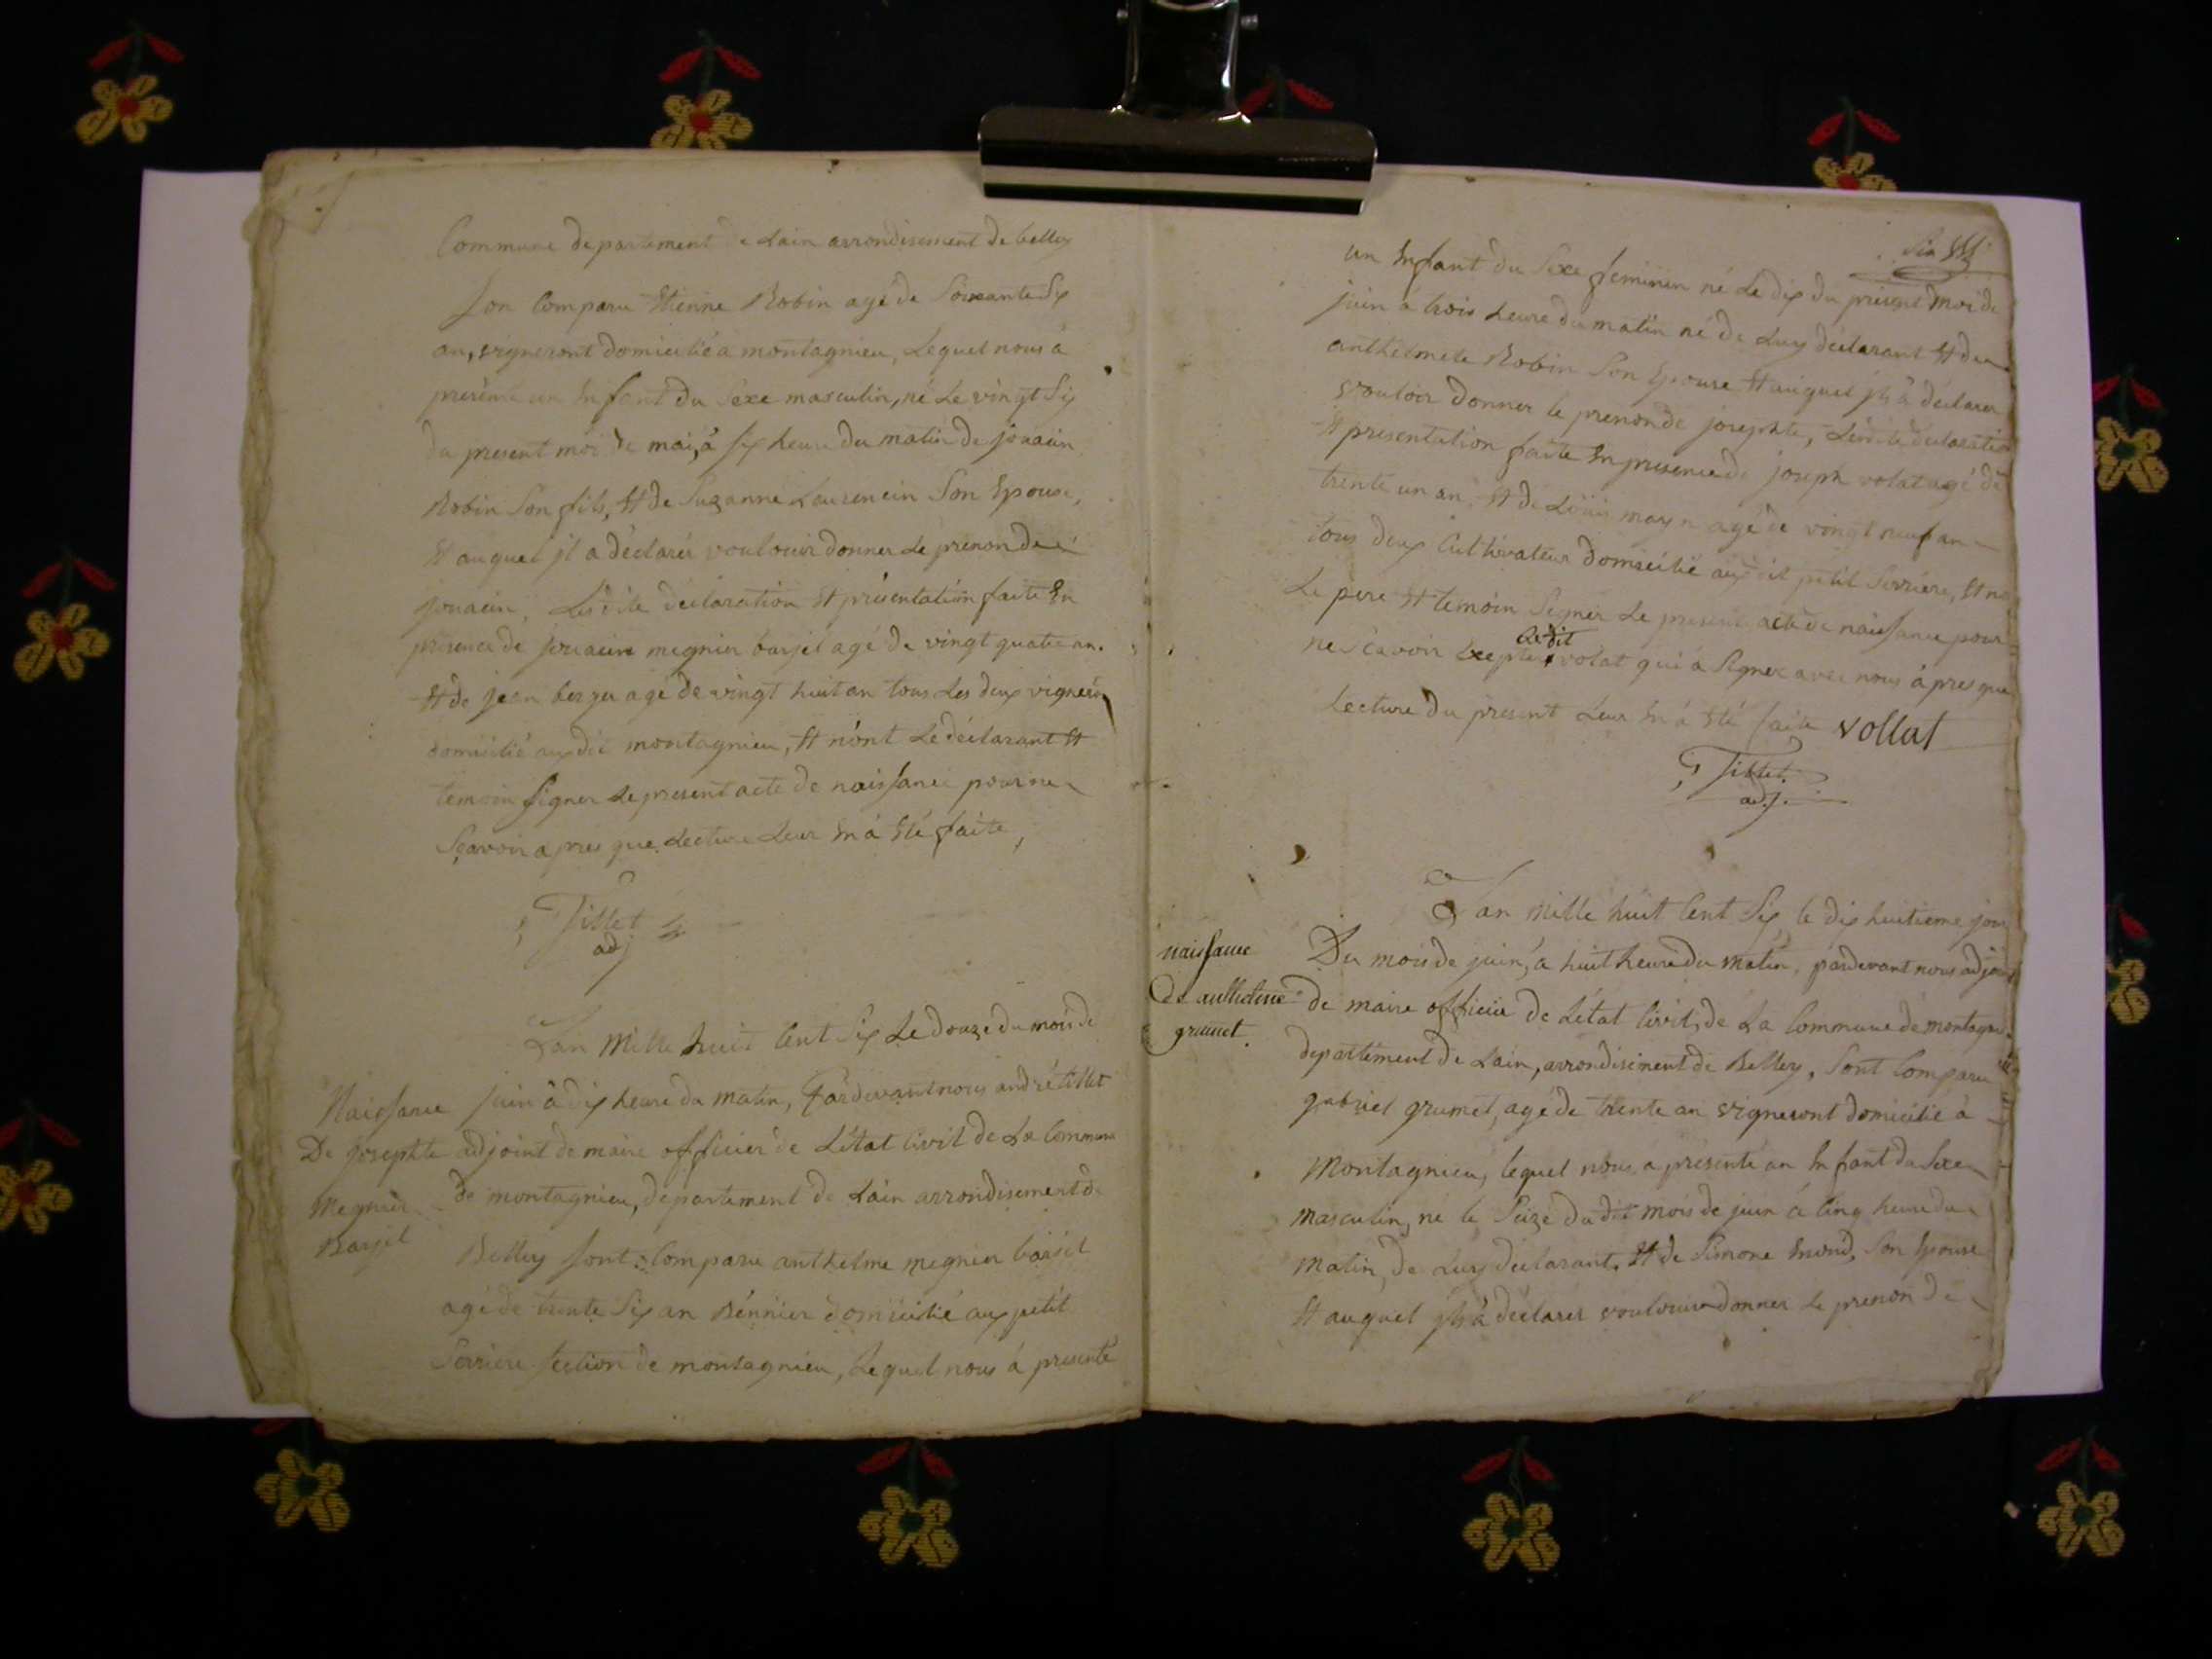 Commune departement de Lain arrondisement de belley
son Comparu Etienne Robin agé de Soixante Six
an, vigneront domicilié a montagnieu, Lequel nous à
présenté un Enfant du Sexe masculin, né Le vingt Six
du present moi de mai, à six heure du matin de jouacin
Robin Son fils, Et de Suzanne Laurencin Son Epouse,
Et auquel jl a déclarer voulouir donner Le prénon de
jouacin, Lesdite déclaration Et présentation faite En
présence de jouacin megnier barjel agé de vingt quatre an.
Et de jean berger agé de vingt huit an tous Les deux vigneron
domicilié audit montagnieu, Et nont Le déclarant Et
temoin signer Le present acte de naissance pour ne
Sçavoir apres que Lecture Leur En à Eté faite,
Tillet
adj
Lan Mille huit Cent Six Le douze du mois de
Naissance
De josephte
Megnier
Barjel
juin à dix heure du matin, Pardevant nous andré tillet
adjoint de maire officier de Létat civil de La Commune
de montagnieu, departement de Lain arrondisement de
Belley sont Comparu anthelme megnier barjel
agé de trente Six an domicilié aux petit
Serriere section de montagnieu, Lequel nous à presenté
Six
un Enfant du Sexe feminin né Le dix du présent moi de
juin à trois heure du matin né de Luy déclarant Et de
anthelmete Robin Son Epouse Et auquel jl à déclarer
vouloir donner le prenon de josephte, Lesdite déclaration
Et presentation faite En presence de joseph volat agé de
trente un an, Et de Louis may n agé de vingt neuf an
tous deux Cultivateur domicilié audit petit Serriere, Et n
Le pere Et temoin Signer Le present acte de naissance pour
ne Scavoir Exepté Ledit volat qui à Signer avec nous àpres que
Lecture du présent Leur En à Eté faite vollat
Tillet
adj.
Lan Mille huit Cent Six, le dix huitieme jour
naissance
de anthelme
grumet.
Du mois de juin, à huit heure du matin, pardevant nous adjoint
de maire officier de Létat Civil, de La Commune de montagnieu
departement de Lain, arrondisement de Belley, Sont Comparu
gabriel grumet, agé de trente an vigneront domicilié à
Montagnieu, lequel nous a présenté un Enfant du Sexe
masculin, né le Seize dudit mois de juin à Cinq heure du
matin, de Luy déclarant, Et de Simone Emond, Son Epouse
Et auquel jl à déclarer voulouir donner Le prenon de